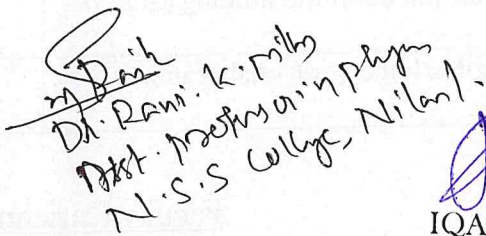 Dr. Rani. K. Pillai
Asst. Professor in physics
N.S.S College, Nilamel.
IQA